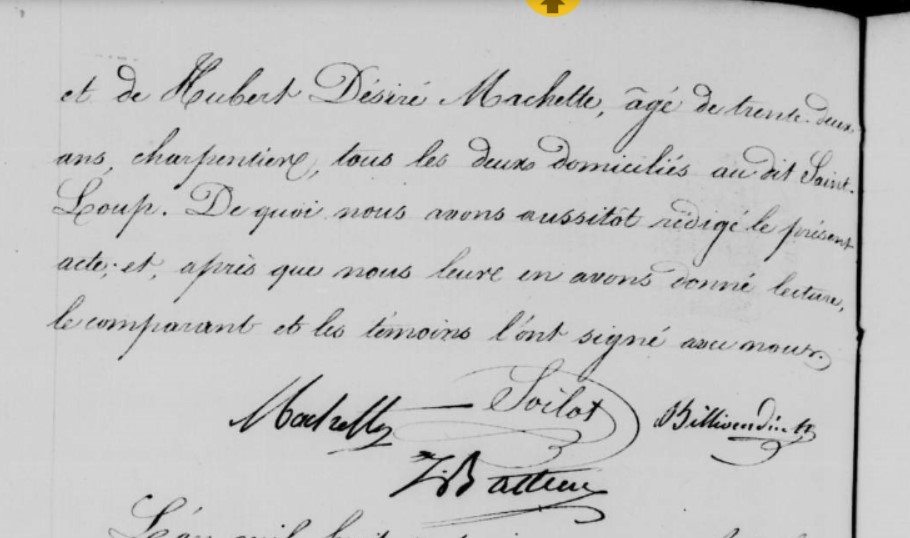 et de Hubert Désiré Machette, âgé de trente-deux
ans, charpentier, tous les deux domiciliés au dit Saint-
Loup. De quoi nous avons aussitôt rédigé le présent
acte; et, après que nous leur en avons donné lecture,
le comparant et les témoins l'ont signé avec nous.
Machette Soilot
L'an mil huit